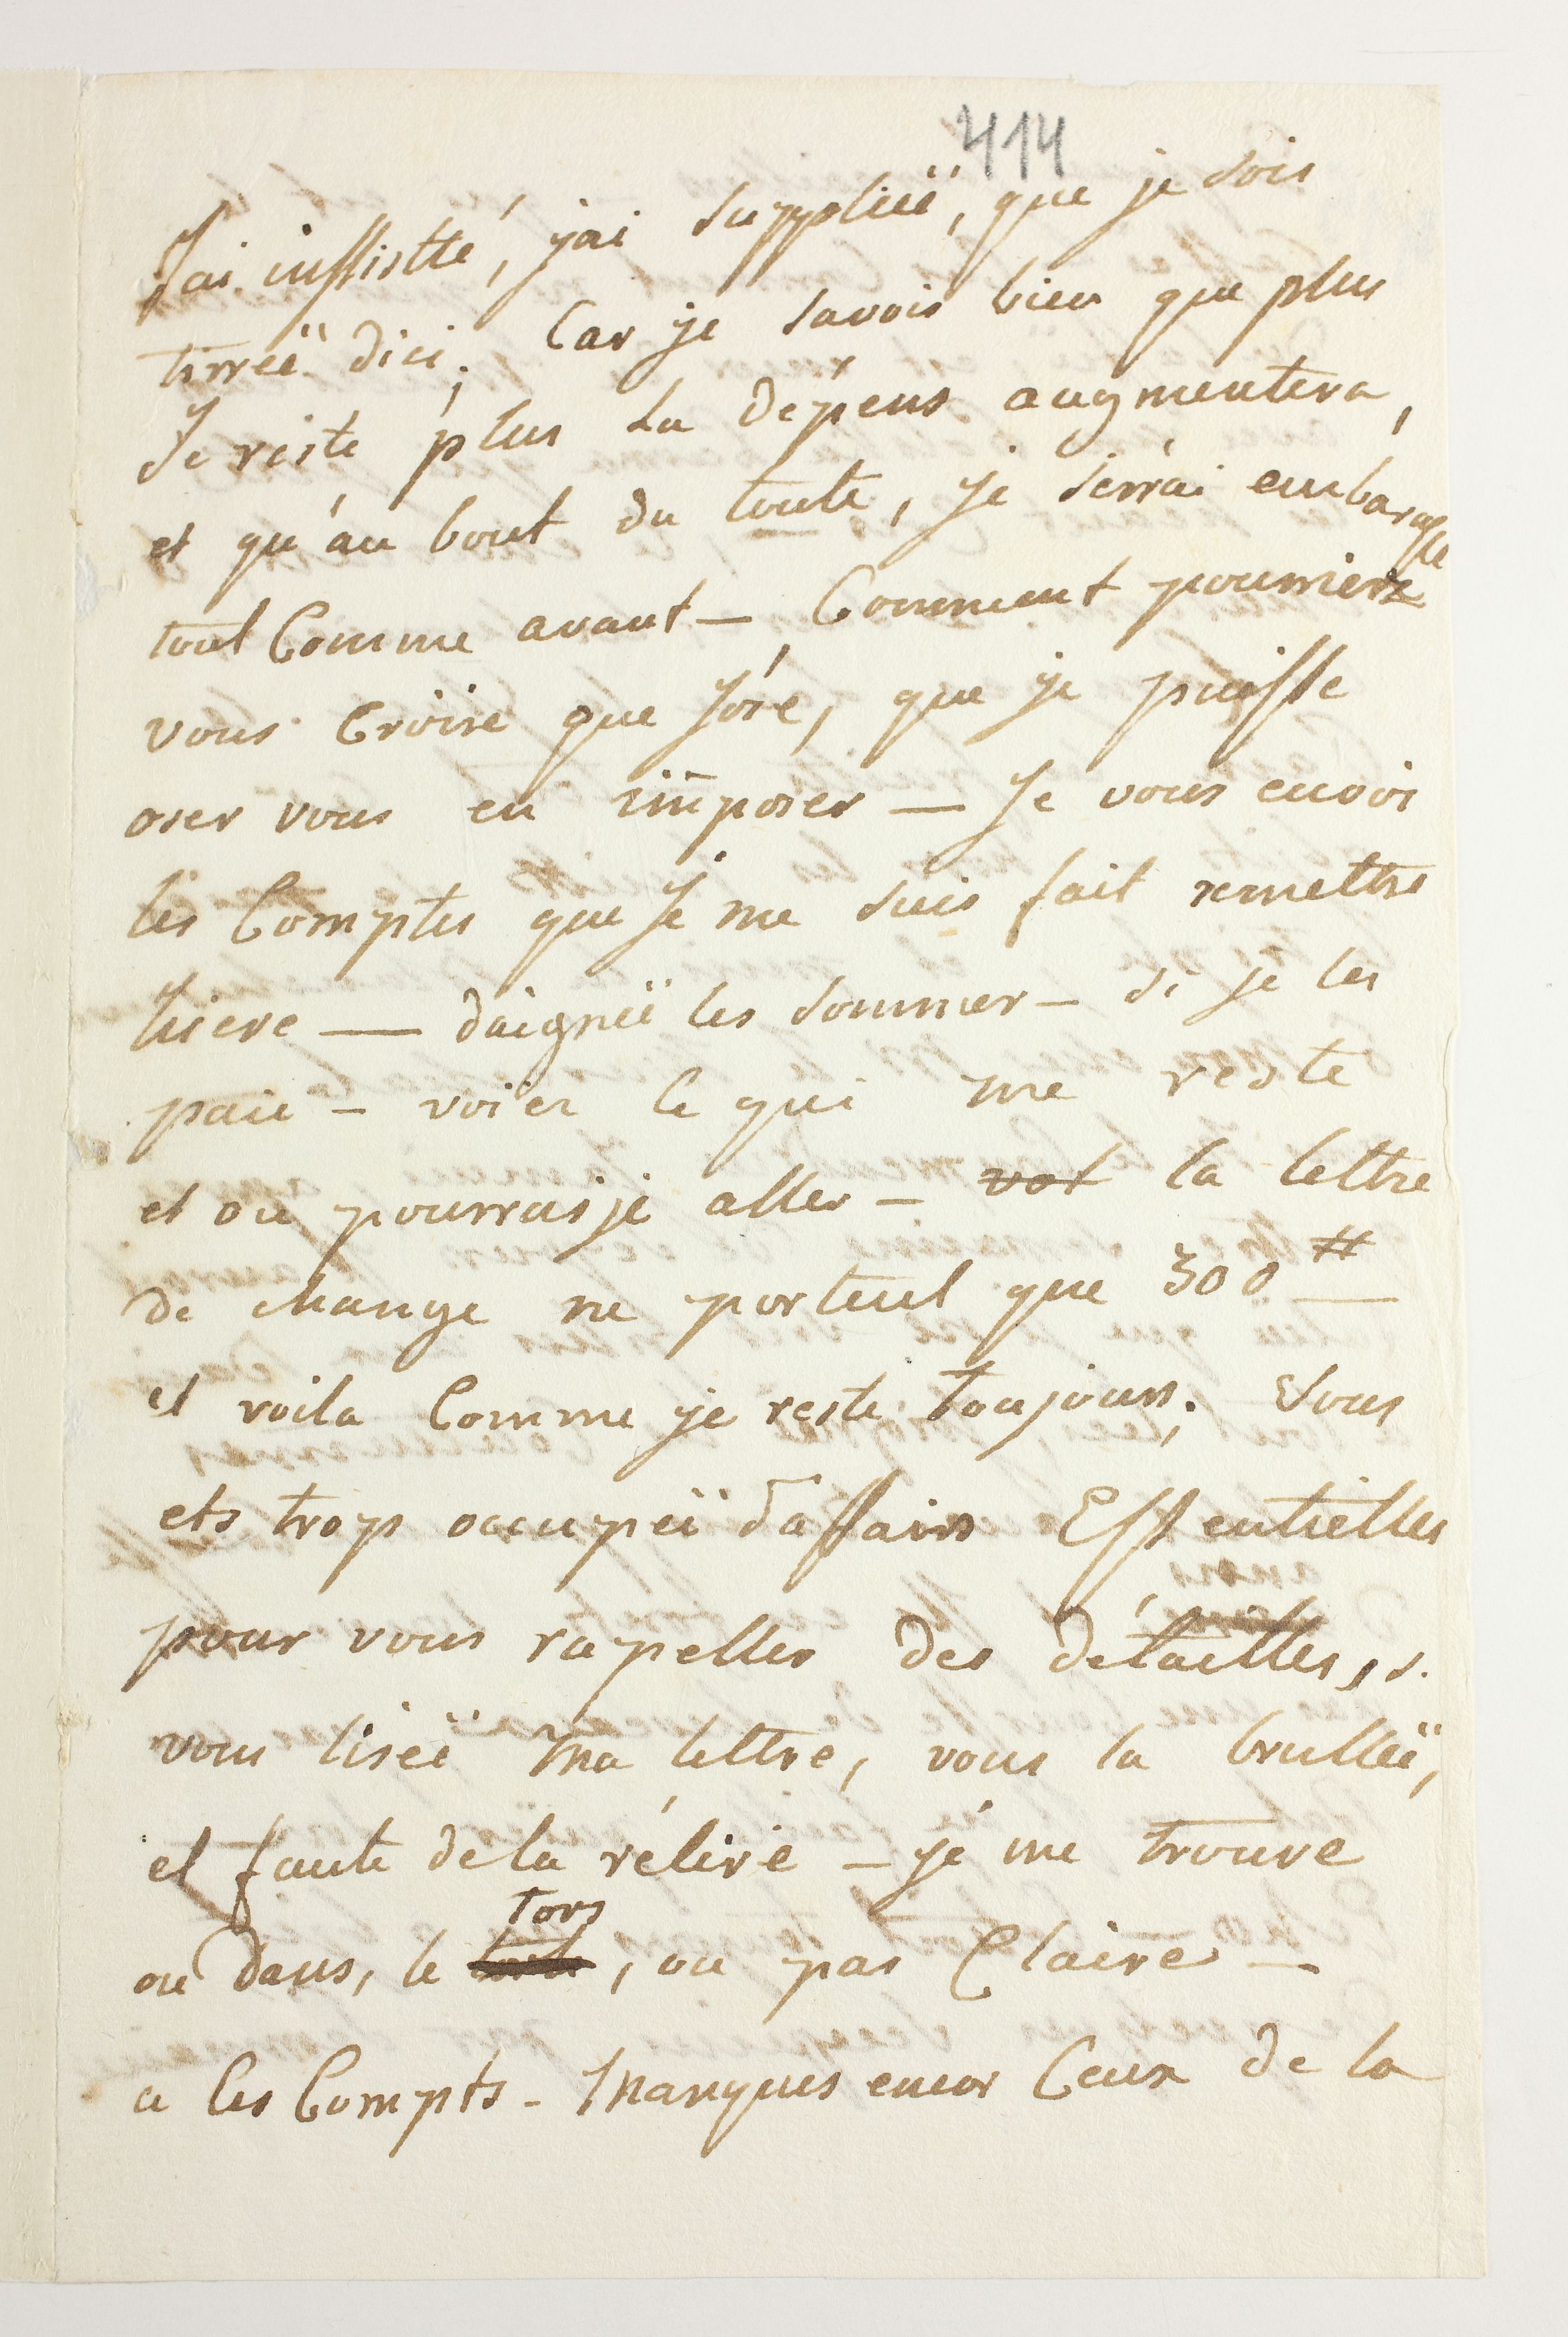 414
J'ai insistté, j'ai suppliëï, que je sois
tirreë d'ici; Car je savois bien que plus
Je reste plus La dépens augmentera,
et qu'au bout du toute, je serrai embarasse
tout Comme avant — Comment pourriez
vous Croire que J'ose, que je puisse
oser vous en imposer — Je vous envoi
les Comptes que Je me suis fait remettre
hiere — daigneï les sommer — si je les
paie — voïez ce qui me reste
et ou pourrais je aller — vot la lettre
de change ne porteut que 300 #
et voila Comme je reste toujours; Vous
ets trop occupeï d'affairs Essentielles
pour vous rapeller des détailles, s.
vous liseï Ma lettre, vous la brulleï,
et faute de la rélire — je me trouve
tors
ou dans, le , ou pas Claire —
a les Compts - Manques encor Ceux de la